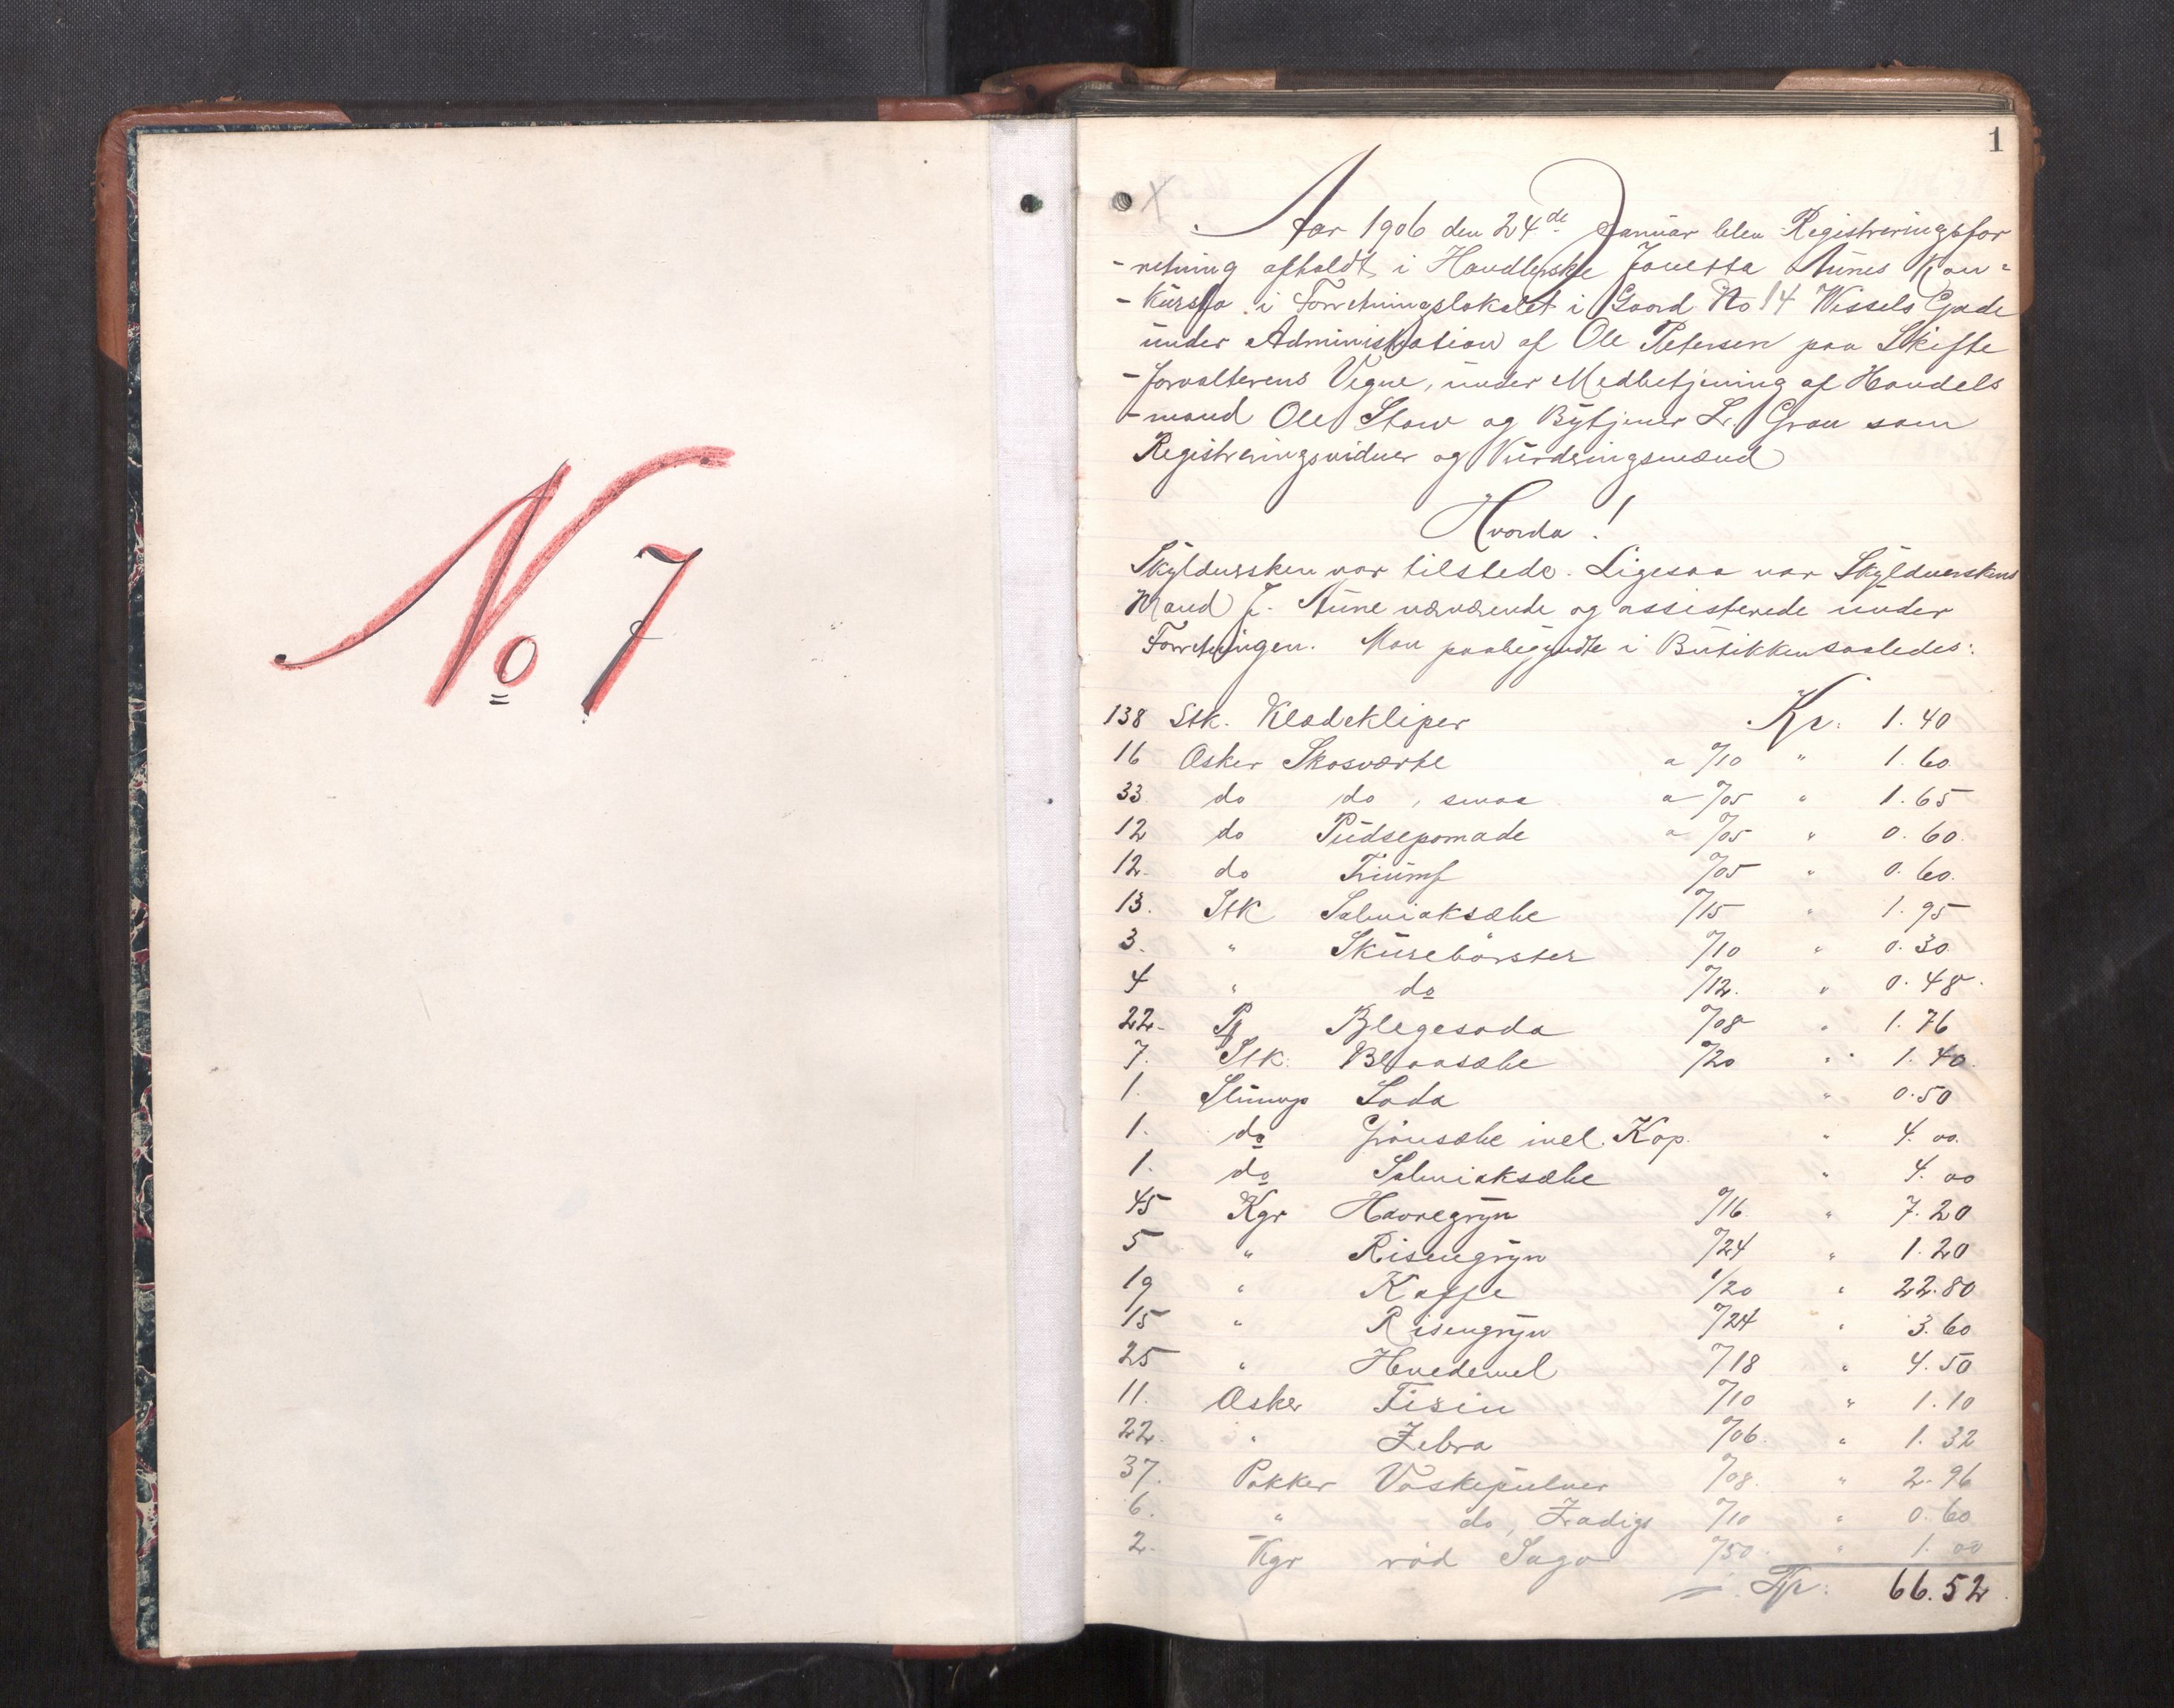 No 7
1
X
Aar 1906 den 24de Januar blev Registreringsfor
- retning afholdt i Handlerske Janetta Aunes Kon=
- kursbo i Forretningslokalet i Gaard No 14 Wessels Gade
under Administration af Ole Petersen paa Skifte
- forvalterens Vegne, under Medbetjening af Handels
- mand Ole Staw og Bytjener L. Grau som
Registreringsvidner og Vurderingsmænd
Hvorda!
Skyldnersken var tilstede. Ligesaa var Skyldnerskens
Mand J. Aune nærværende og assisterede under
Forretningen. Man paabegyndte i Butikken saaledes:
138 Stk. Klædekliper Kr. 1.40
16 Æsker Skosværte a 0/10 " 1.60
33 do do, smaa a 0/05 " 1.65
12 do Pudsepomade a 0/05 " 0.60
12. do Triumf 0/05 " 0.60
13. Stk Salmiaksæbe 0/15 " 1.95
3. " Skurebörster 0/10 " 0.30
4 " do 0/12. " 0.48.
22- Pk Blegesoda 0/08 " 1.76
7. Stk. Blaasæbe 0/20 " 1.40
1. Slump Soda " 0.50
1. do Grönsæbe incl. Kop. " 4.00.
1. do Salmiaksæbe " 4.00
45 Kgr Havregryn 0/16 " 7.20
5 " Risengryn 0/24 " 1.20
19 " Kaffe 1/20 " 22.80
15 " Risengryn 0/24 " 3.60
25 " Hvedemel 0/18 " 4.50
11. Æsker Tisin 0/10 " 1.10
22. " Zebra 0/06. " 1.32
37. Pakker Vaskepulver 0/08. " 2.96
6. " do, Zadigs 0/10 " 0.60
2. Kgr röd Sago 0/50. " 1.00
Tr. 66.52